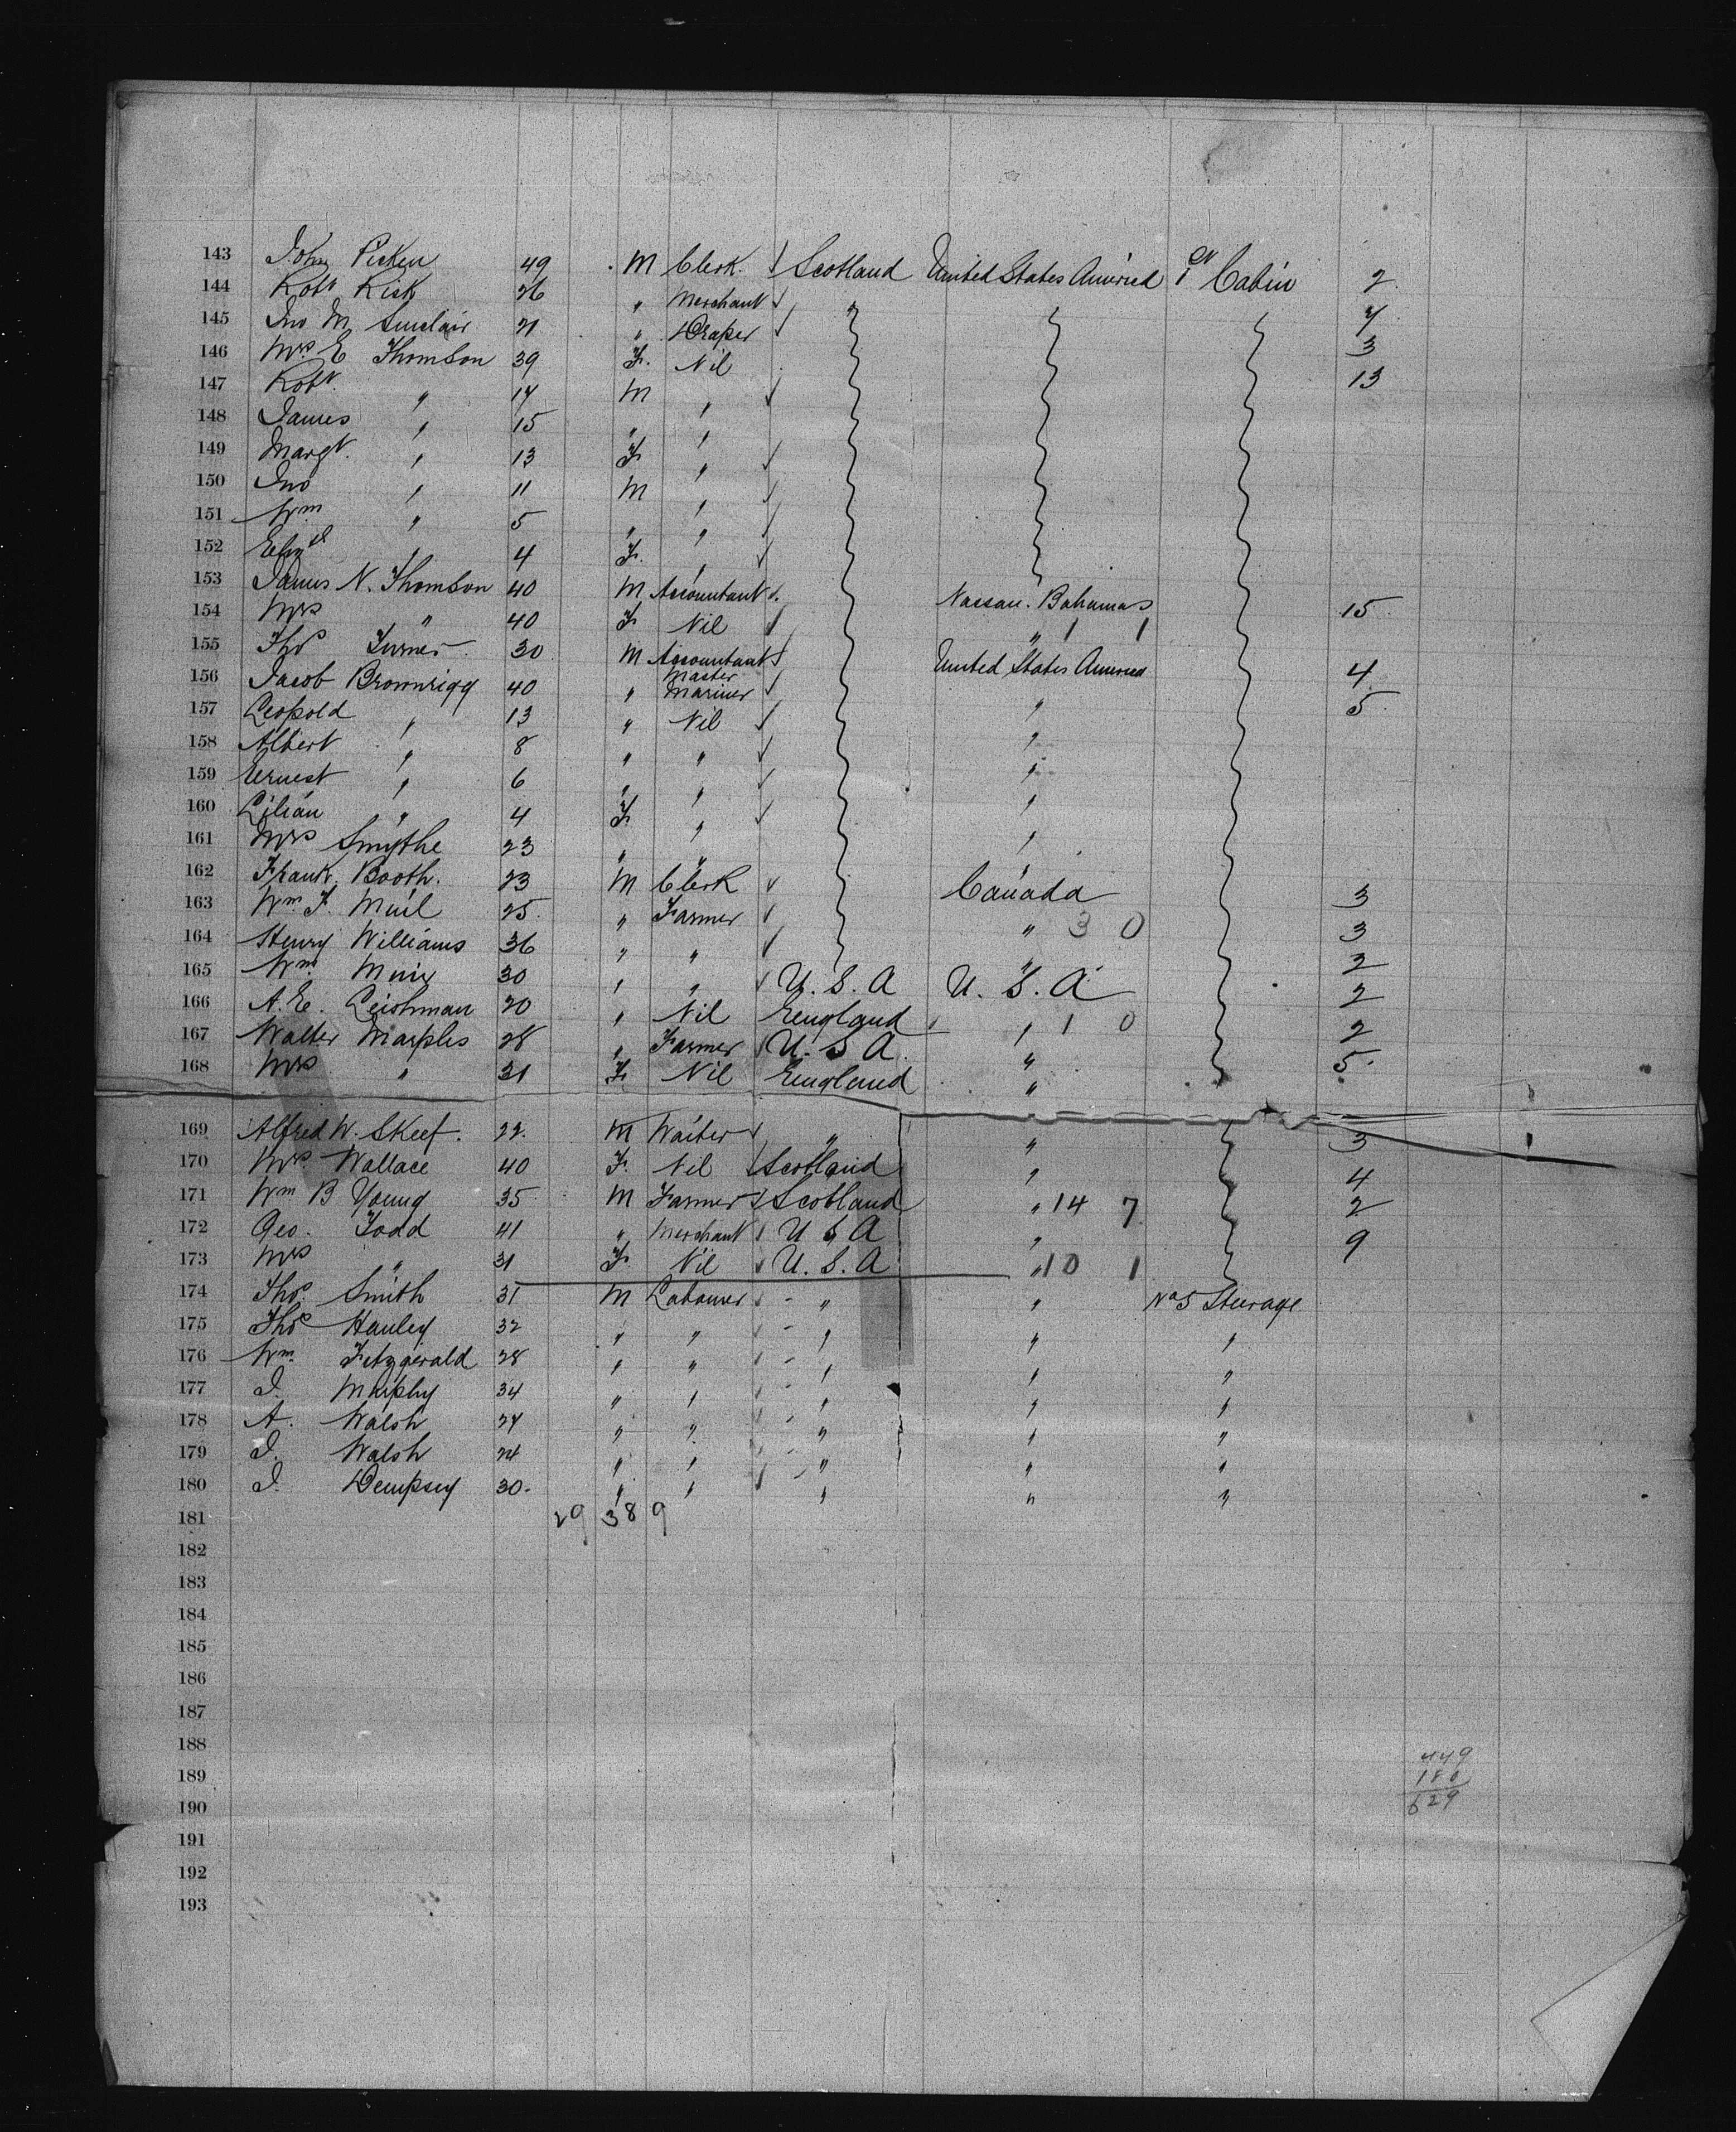 143 John Picken 49 M Clerk. Scotland United States America 1st Cabin 2
144 Robt Risk 26 " Merchant " 4
145 Jno M. Sinclair 21 " Draper 3
146 Mrs E Thomson 39 F. Nil 13
147 Robt. " 17 M "
148 James " 15 " "
149 Margt. " 13 F "
150 Jno " 11 M "
151 Wm " 5 " "
152 Elizth " 4 F. "
153 James N. Thomson 40 M Accountant Nassau. Bahamas 15
154 Mrs " 40 F Nil " 1 1
155 Thos Turner 30 M Accountant United States America 4
156 Jacob Brownrigg 40 " Master Mariner " 5
157 Leopold " 13 " Nil "
158 Albert " 8 " " "
159 Ernest " 6 " " "
160 Lilian " 4 F. " "
161 Mrs Smythe 23 " " "
162 Frank Booth. 23 M Clerk Canada 3
163 Wm F. Muil 25 " Farmer " 3 0 3
164 Henry Williams 36 " " " 2
165 Wm. Muir 30 " " U.S.A U.S.A 2
166 A.E. Leishman 20 " Nil England " 1 0 2
167 Walter Marples 28 " Farmer U.S A. " 5
168 Mrs " 31 F. Nil England "
169 Alfred W. Skeef. 22. M Waiter " " 3
170 Mrs. Wallace 40 F. Nil Scotland " 4
171 Wm B Young 35 M Farmer Scotland " 14 7 2
172 Geo. Todd 41 " Merchant U S A " 9
173 Mrs " 31 F. Nil U.S.A " 10 1
174 Thos. Smith 31 M Labourer " " No 5 Steerage
175 Thos Hanley 32 " " " " "
176 Wm. Fitzgerald 28 " " " " "
177 J. Murphy 34 " " " " "
178 A. Walsh 24 " " " " "
179 J. Walsh 24 " " " " "
180 J. Dempsey 30. " " " " "
181 29 38 9
182
183
184
185
186
187
188
449
189 180
190 629
191
192
193